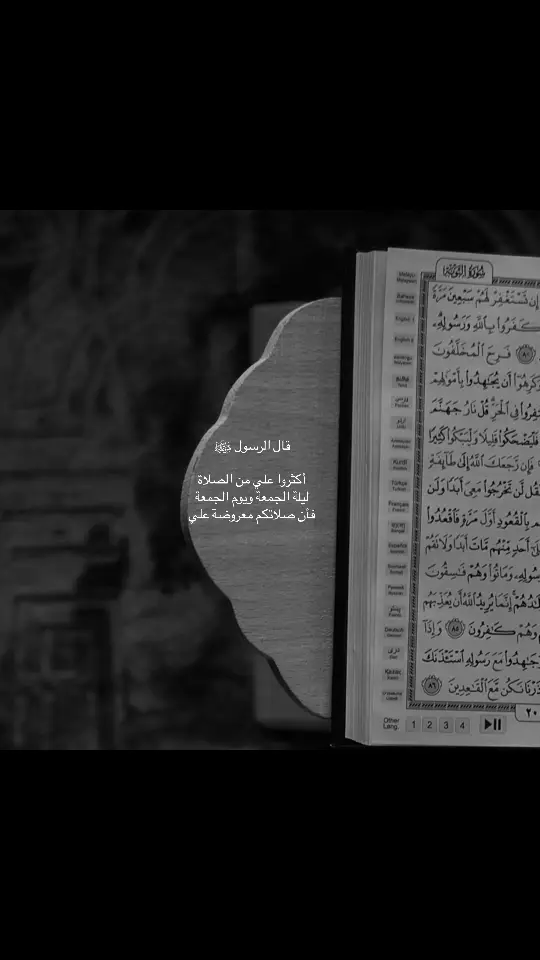 قال الرسول ﷺ
أكثروا علي من الصلاة
ليلة الجمعة ويوم الجمعة
فأن صلاتكم معروضة علي
سورة التوبة
إن تستغفر لهم سبعين مرة
كفروا بالله ورسوله
٨٠ فرح المخلفون
أن يجهدوا بأمولهم
في الحر قل نار جهنم
فليضحكوا قليلا وليبكوا كثيرا
فإن رجعك الله إلى طائفة
فقل لن تخرجوا معي أبدا ولن
بالقعود أول مرة فاقعدوا
أحد منهم مات أبدا ولا تقم
وماتوا وهم فسقون
إنما يريد الله أن يعذبهم
وهم كفرون ٨٥ وإذا
وجهدوا مع رسوله استئذنك
ذرنا نكن مع القعدين ٨٦
English 1
English 2
فارسی
اردو
Türkçe
Français
Español
پښتو
Deutsch
دری
Other
Lang.
1 2 3 4
٢٠